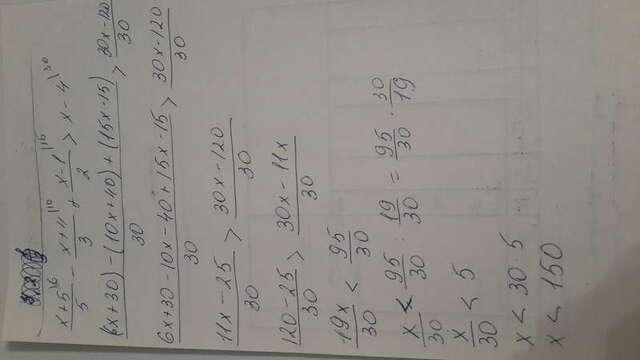 x+5\6/5 - x+4\10/3 + x-1\15/2 > x-4\30
(6x+30)-(10x+40)+(15x-15)/30 > 30x-120/30
6x+30-10x-40+15x-15/30 > 30x-120/30
11x-25/30 > 30x-120/30
120-25/30 > 30x-11x/30
19x/30 < 95/30
x/30 < 95/30 : 19/30 = 95/30 · 30/19
x/30 < 5
x < 30·5
x < 150